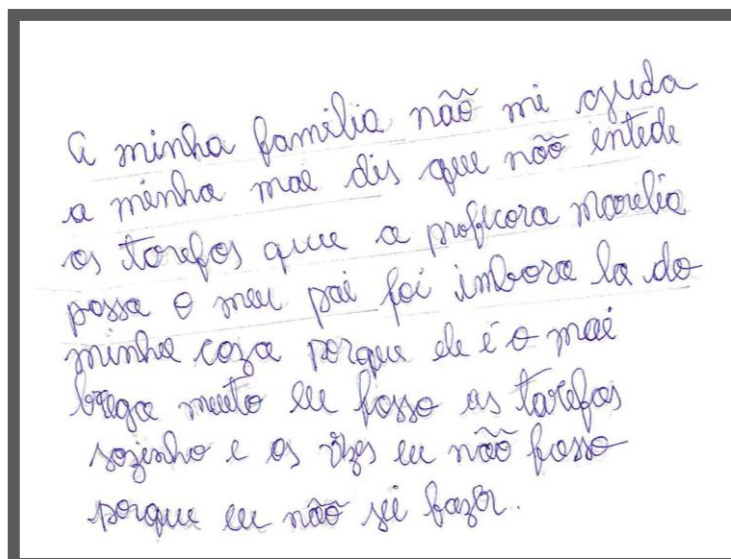 A minha familia não mi ajuda
a minha mae dis que não entede
as tarefas que a proficora marelia
passa o meu pai foi imbora la da
minha caza porque ele é o mai
briga muito eu fasso as tarefas
sozinho e as vezes eu não fasso
porque eu não sei fazer.